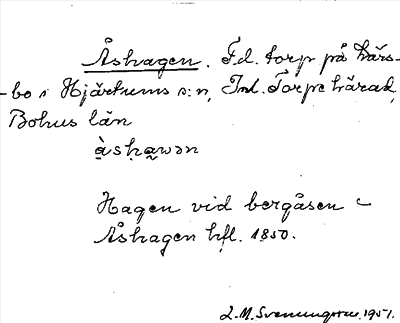 Åshagen. F.d. torp på Kårs-
-bo i Hjärtums s:n, Inl. Torpe härad,
Bohus län
àshawən
Hagen vid bergåsen
Åshagen hfl. 1850.
L.M. Svenungsson. 1951.